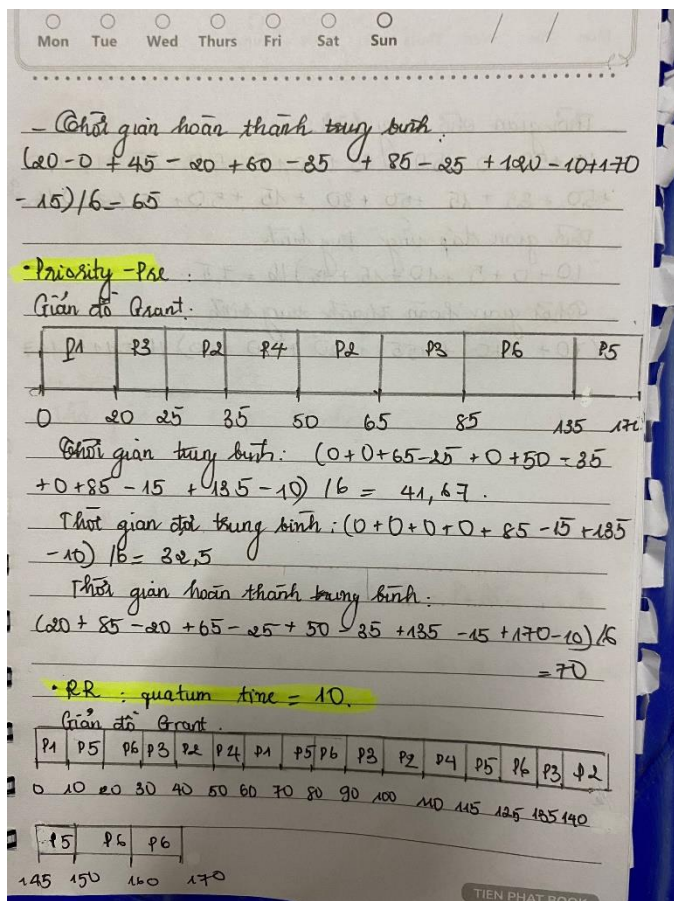 Mon Tue Wed Thurs Fri Sat Sun / /
- Thời gian hoàn thành trung bình :
(20-0 + 45 - 20 + 60 - 35 + 85 - 25 + 120 - 10 + 170
- 15)/6 = 65
• Priority - Pre :
Giản đồ Grant :
P1 P3 P2 P4 P2 P3 P6 P5
0 20 25 35 50 65 85 135 170
Thời gian trung bình : (0 + 0 + 65 - 25 + 0 + 50 - 35
+ 0 + 85 - 15 + 135 - 10) /6 = 41,67 .
Thời gian đợi trung bình : (0 + 0 + 0 + 0 + 85 - 15 + 135
- 10) /6 = 32,5
Thời gian hoàn thành trung bình :
(20 + 85 - 20 + 65 - 25 + 50 - 35 + 135 - 15 + 170 - 10)/6
= 70
• RR : quatum time = 10.
Giản đồ Grant .
P1 P5 P6 P3 P2 P4 P1 P5 P6 P3 P2 P4 P5 P6 P3 P2
0 10 20 30 40 50 60 70 80 90 100 110 115 125 135 140
P5 P6 P6
145 150 160 170
TIEN PHAT BOOK